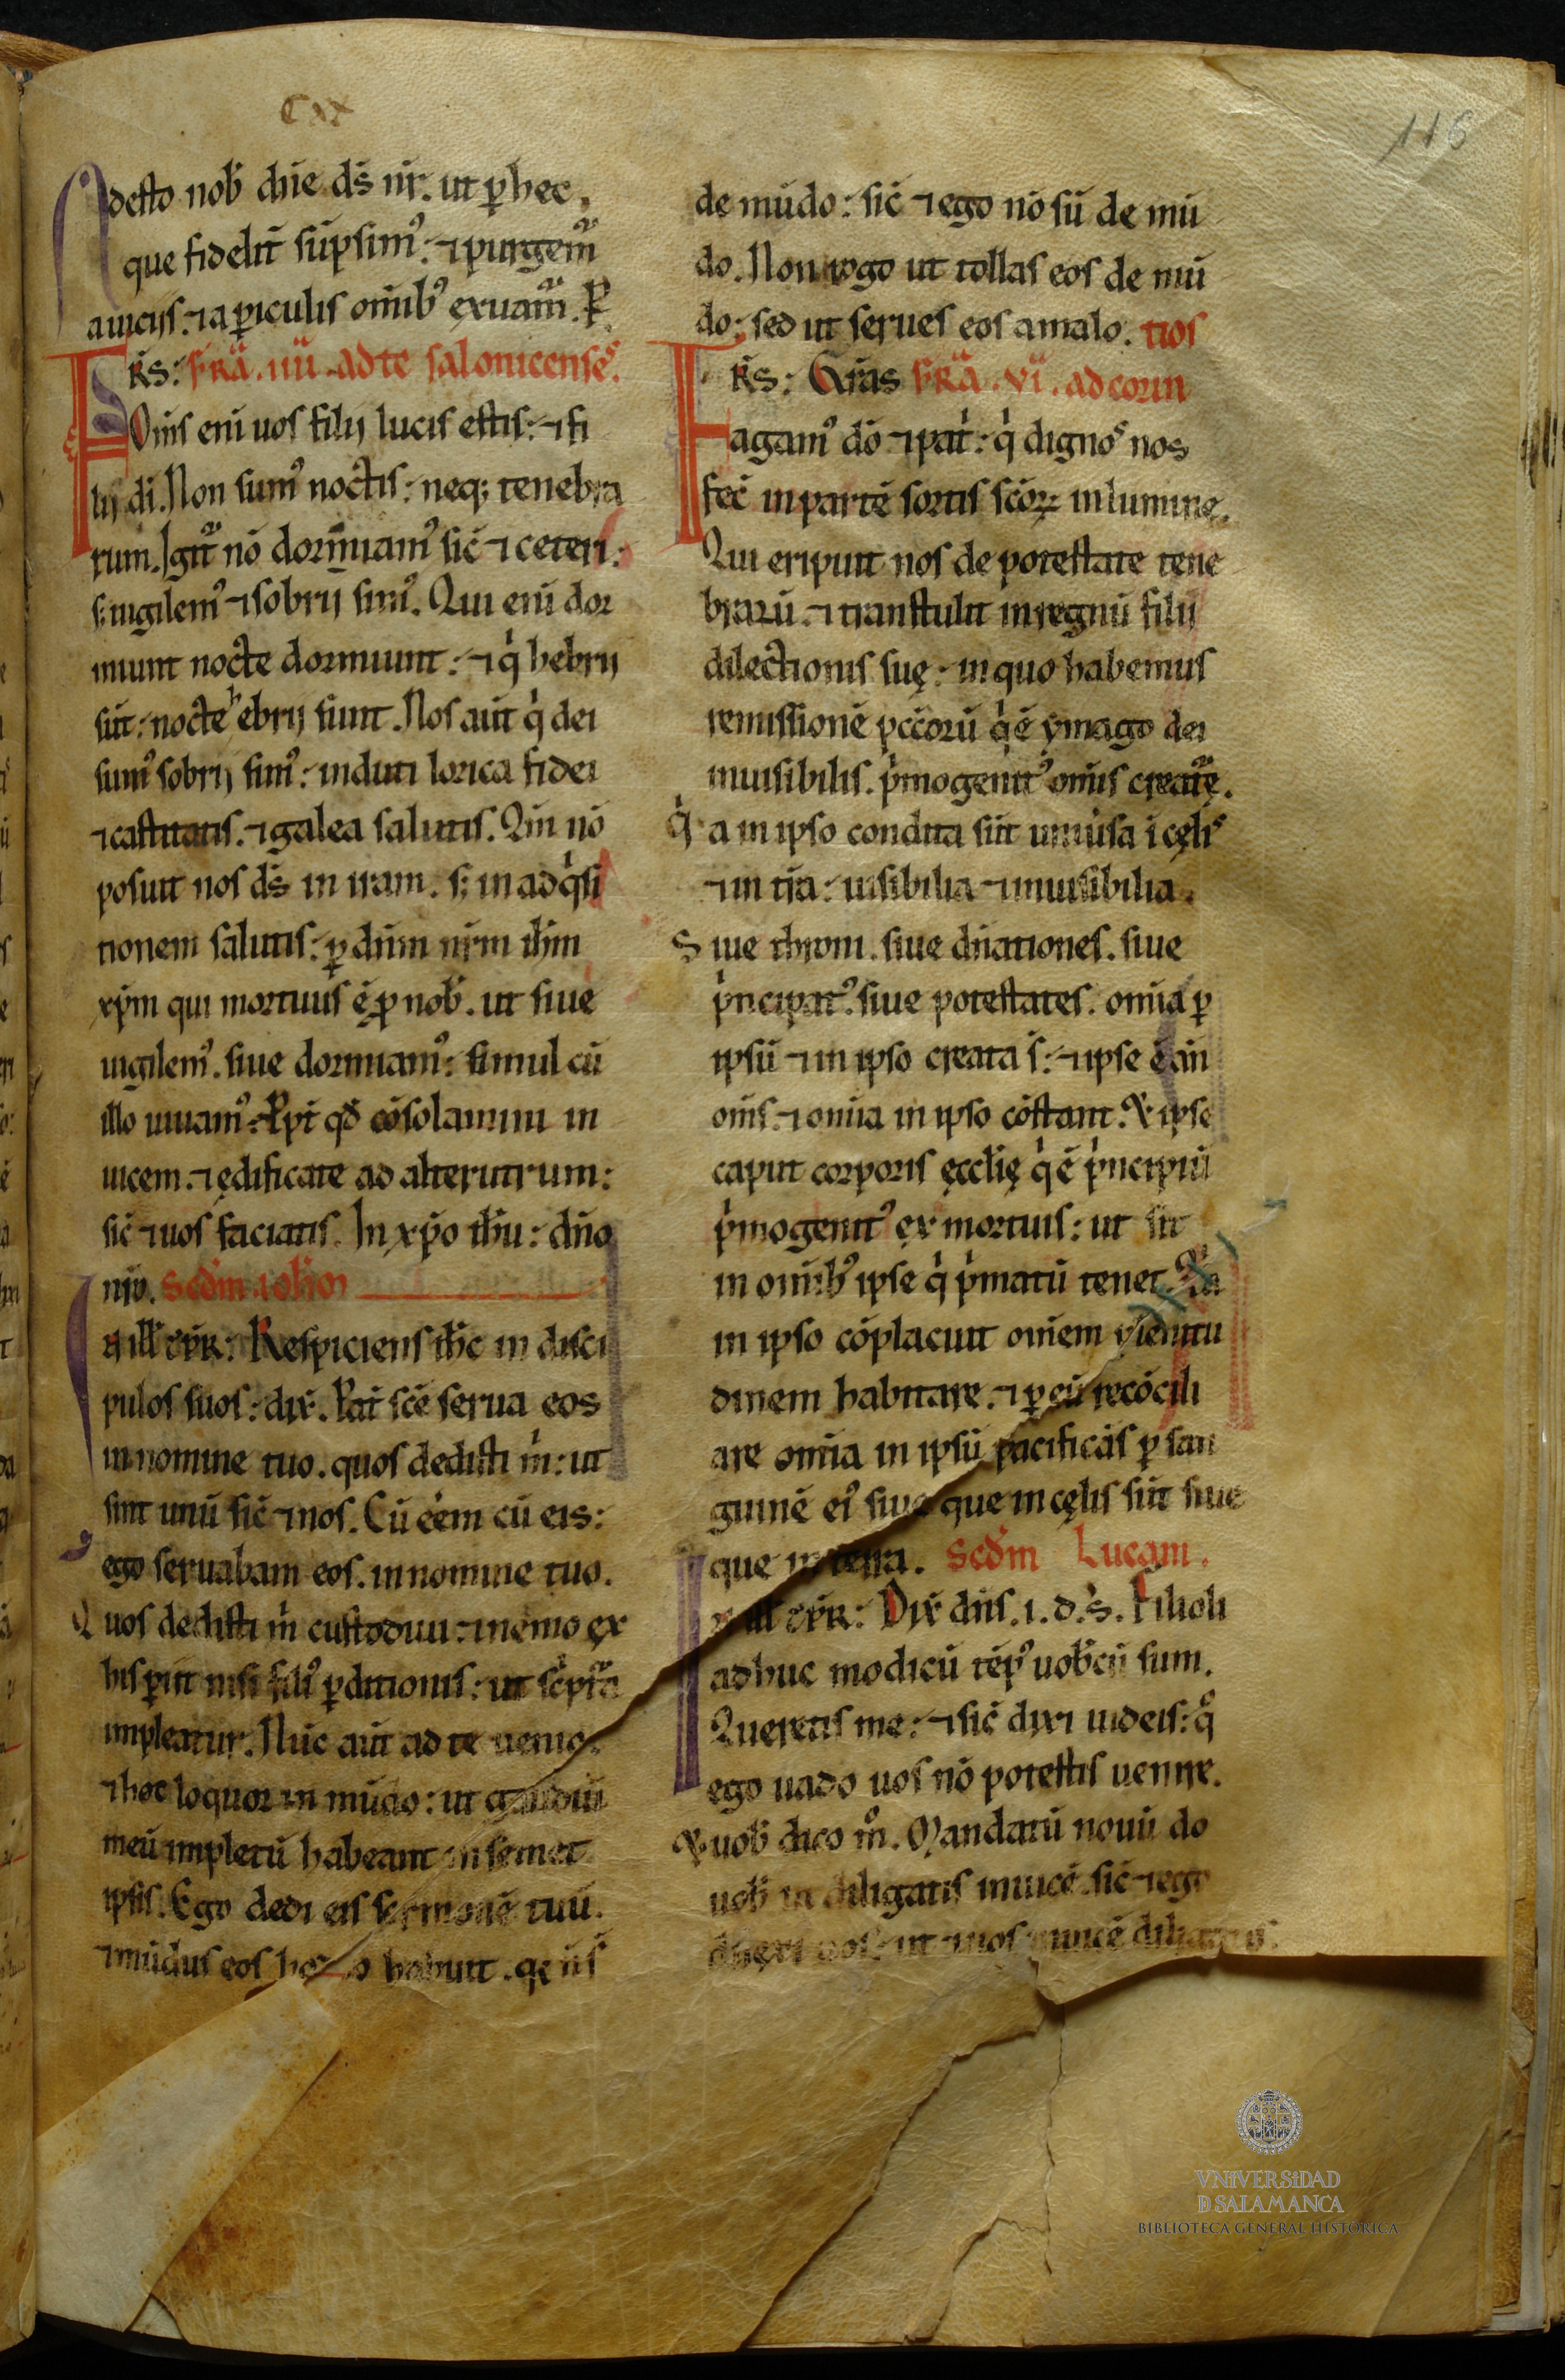 CXX
116
Adesto nob̄ dn̄e ds̄ nr̄. ut ꝑ hec,
que fidelit̄ sūpsimꝰ: ⁊ purgem̄
a uiciis. ⁊ a ꝑiculis om̄ibꝰ exuam̄. P.
FR̄S: FR̄A. IIII. ad te salonicenses.
Om̄s eni uos filij lucis estis: ⁊ fi
lij di. Non sumꝰ noctis: neq; tenebra
rum. Igit̄ nō dormiamꝰ sic̄ ⁊ ceteri:
s; uigilemꝰ ⁊ sobrij simꝰ. Qui eni dor
miunt nocte dormiunt: ⁊ q̍ hebrij
sūt: nocte hebrij sunt. Nos aūt q̍ dei
sumꝰ sobrij simꝰ: induti lorica fidei
⁊ castitatis. ⁊ galea salutis. Qm̄ nō
posuit nos ds̄ in iram. s; in adq̍si
tionem salutis: ꝑ dn̄m nr̄m ih̄m
xp̄m qui mortuus ē ꝓ nob̄. ut siue
uigilemꝰ. siue dormiamꝰ: simul cū
illo uiuamꝰ. Ppt̄ qd̄ cōsolamini in
uicem. ⁊ ędificate ad alterutrum:
sic̄ ⁊ uos faciatis. In xp̄o ih̄u: dn̄o
nr̄o. Scd̄m ioh̄o
In ill̄ tp̄R: Respiciens ih̄c in disci
pulos suos: dix̄. Pat̄ scē serua eos
in nomine tuo. quos dedisti m̍: ut
sint unū sic̄ ⁊ nos. Cū eēm cū eis:
ego seruabam eos. in nomine tuo.
Quos dedisti m̍ custodiui: ⁊ nemo ex
his ꝑiit nisi filiꝰ ꝑditionis: ut sc̍pt̄a
impleatur. Nūc aūt ad te uenio:
⁊ hoc loquor in mūdo: ut gaudiū
meū impletū habeant in semet
ipsis. Ego dedi eis sermonē tuū.
⁊ mūdus eos hodio habuit. q
de mūdo: sic̄ ⁊ ego nō sū de mū
do. Non rogo ut tollas eos de mū
do: sed ut serues eos a malo. tios
FR̄S: Gr̄as FR̄A. VI. ad corin
agamꝰ dō ⁊ pat̍: q̍ dignos nos
fec̄ in partē sortis sc̄oꝝ in lumine.
Qui eripuit nos de potestate tene
brarū. ⁊ transtulit in regnū filij
dilectionis suę: in quo habemus
remissionē pcc̄orū q̍ ē ymago dei
inuisibilis. p̍mogenitꝰ om̄is creat̄ę.
q̍a in ipso condita sūt uniūsa ī cęlis
⁊ in tr̄a: uisibilia ⁊ inuisibilia.
Siue throni. siue dn̄ationes. siue
p̍ncipatꝰ. siue potestates. om̄ia ꝑ
ipsū ⁊ in ipso creata s̄: ⁊ ipse ē an̄
om̄s. ⁊ om̄ia in ipso cōstant. Et ipse
caput corporis ęccl̄ię q̍ ē p̍ncipiū
p̍mogenitꝰ ex mortuis: ut sit
in om̄ibꝰ ipse q̍ p̍matū tenet. Q̄a
in ipso cōplacuit om̄em plenitu
dinem habitare. ⁊ ꝑ eū recōcili
are om̄ia in ipsū pacificās ꝑ san
guinē eiꝰ siue que in cęlis sūt siue
que in terra. Scd̄m Lucam.
In ill̄ tp̄R: Dix̄ dn̄s. i. d. s̄. Filioli
adhuc modicū tēpꝰ uob̄cū sum.
Queretis me: ⁊ sic̄ dixi iudeis: qͦ
ego uado uos nō potestis uenire.
Et uob̄ dico mͦ. Mandatū nouū do
uob̄ ut diligatis inuicē. sic̄ ⁊ ego
dilexi uos: ut ⁊ uos inuicē diligatis.
VNIVERSIDAD
D SALAMANCA
BIBLIOTECA GENERAL HISTÓRICA